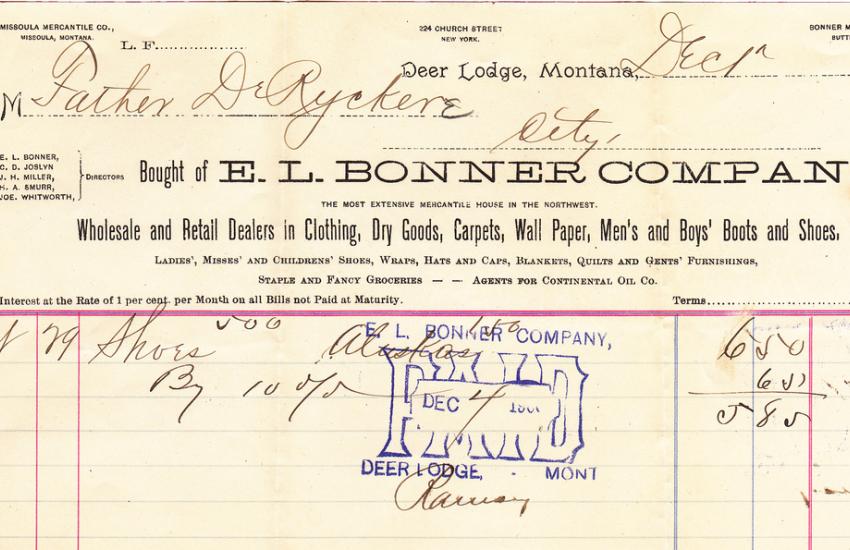 MISSOULA MERCANTILE CO.,
MISSOULA, MONTANA.
L. F.
224 CHURCH STREET
NEW YORK.
BONNER M
BUTT
Deer Lodge, Montana, Dec 1"
M Father De Ryckere
City,
E. L. BONNER,
C. D. JOSLYN
J. H. MILLER,
H. A. SMURR,
JOE. WHITWORTH,
DIRECTORS
Bought of E. L. BONNER COMPAN
THE MOST EXTENSIVE MERCANTILE HOUSE IN THE NORTHWEST.
Wholesale and Retail Dealers in Clothing, Dry Goods, Carpets, Wall Paper, Men's and Boys' Boots and Shoes,
LADIES', MISSES' AND CHILDRENS' SHOES, WRAPS, HATS AND CAPS, BLANKETS, QUILTS AND GENTS' FURNISHINGS,
STAPLE AND FANCY GROCERIES — — AGENTS FOR CONTINENTAL OIL CO.
Interest at the Rate of 1 per cent. per Month on all Bills not Paid at Maturity.
Terms
29 Shoes 500 Alaskas 150 650
By 10 % 65
585
E. L. BONNER COMPANY,
PAID
DEC 4 190
DEER LODGE, - MONT
Ramsay